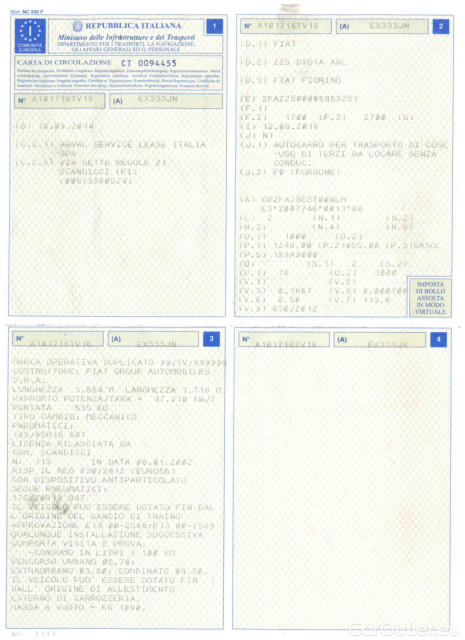 Mod. MC 820 F
COMUNITÀ
EUROPEA
REPUBBLICA ITALIANA
Ministero delle Infrastrutture e dei Trasporti
DIPARTIMENTO PER I TRASPORTI, LA NAVIGAZIONE,
GLI AFFARI GENERALI ED IL PERSONALE
1
CARTA DI CIRCOLAZIONE CT 0094455
N° A101716TV16 (A) EX333JN
(B) 18.09.2014
(C.2.1) ARVAL SERVICE LEASE ITALIA
SPA
(C.2.3) VIA SETTE REGOLE 21
SCANDICCI (FI)
(00879960524)
N° A101716TV16 (A) EX333JN 2
(D.1) FIAT
(D.2) 225 DXD1A A6L
(D.3) FIAT FIORINO
(E) ZFA22500006859251
(F.1)
(F.2) 1700 (F.3) 2700 (G)
(I) 12.09.2016
(J) N1
(J.1) AUTOCARRO PER TRASPORTO DI COSE
-USO DI TERZI DA LOCARE SENZA
CONDUC.
(J.2) F0 (FURGONE)
(K) OBZFA28EST008LH
E3*2007/46*0011*08
(L) 2 (N.1) (N.2)
(N.3) (N.4) (N.5)
(O.1) 1000 (O.2)
(P.1) 1248.00 (P.2)055.00 (P.3)GASOL
(P.5) 199A9000
(Q) (S.1) 2 (S.2)
(U.1) 76 (U.2) 3000
(V.1) (V.2)
(V.3) 0.1667 (V.5) 0.000700
(V.6) 0.50 (V.7) 119.0
(V.9) 630/2012
IMPOSTA
DI BOLLO
ASSOLTA
IN MODO
VIRTUALE
N° A101716TV16 (A) EX333JN 3
MARCA OPERATIVA DUPLICATO 99/TV/999999
COSTRUTTORE: FIAT GROUP AUTOMOBILES
S.P.A.
LUNGHEZZA 3.864 M LARGHEZZA 1.716 M
RAPPORTO POTENZA/TARA = 47.210 KW/T
PORTATA 535 KG
TIPO CAMBIO: MECCANICO
PNEUMATICI:
185/65R15 88T
LICENZA RILASCIATA DA
COM. SCANDICCI
N. 113 IN DATA 08.01.2002
RISP IL REG 630/2012 (EURO5B)
CON DISPOSITIVO ANTIPARTICOLATO
SEGUE PNEUMATICI:
175/70R14 84T
IL VEICOLO PUO' ESSERE DOTATO FIN DAL
L' ORIGINE DEL GANCIO DI TRAINO
APPROVAZIONE E13 00-2568;E13 00-2569
QUALUNQUE INSTALLAZIONE SUCCESSIVA
COMPORTA VISITA E PROVA.
-CONSUMO IN LITRI / 100 KM
PERCORSO URBANO 05.70;
EXTRAURBANO 03.80; COMBINATO 04.50.
IL VEICOLO PUO' ESSERE DOTATO FIN
DALL' ORIGINE DI ALLESTIMENTO
ESTERNO DI CARROZZERIA.
MASSA A VUOTO = KG 1090.
N° A101716TV16 (A) EX333JN 4
CarOutlet.eu